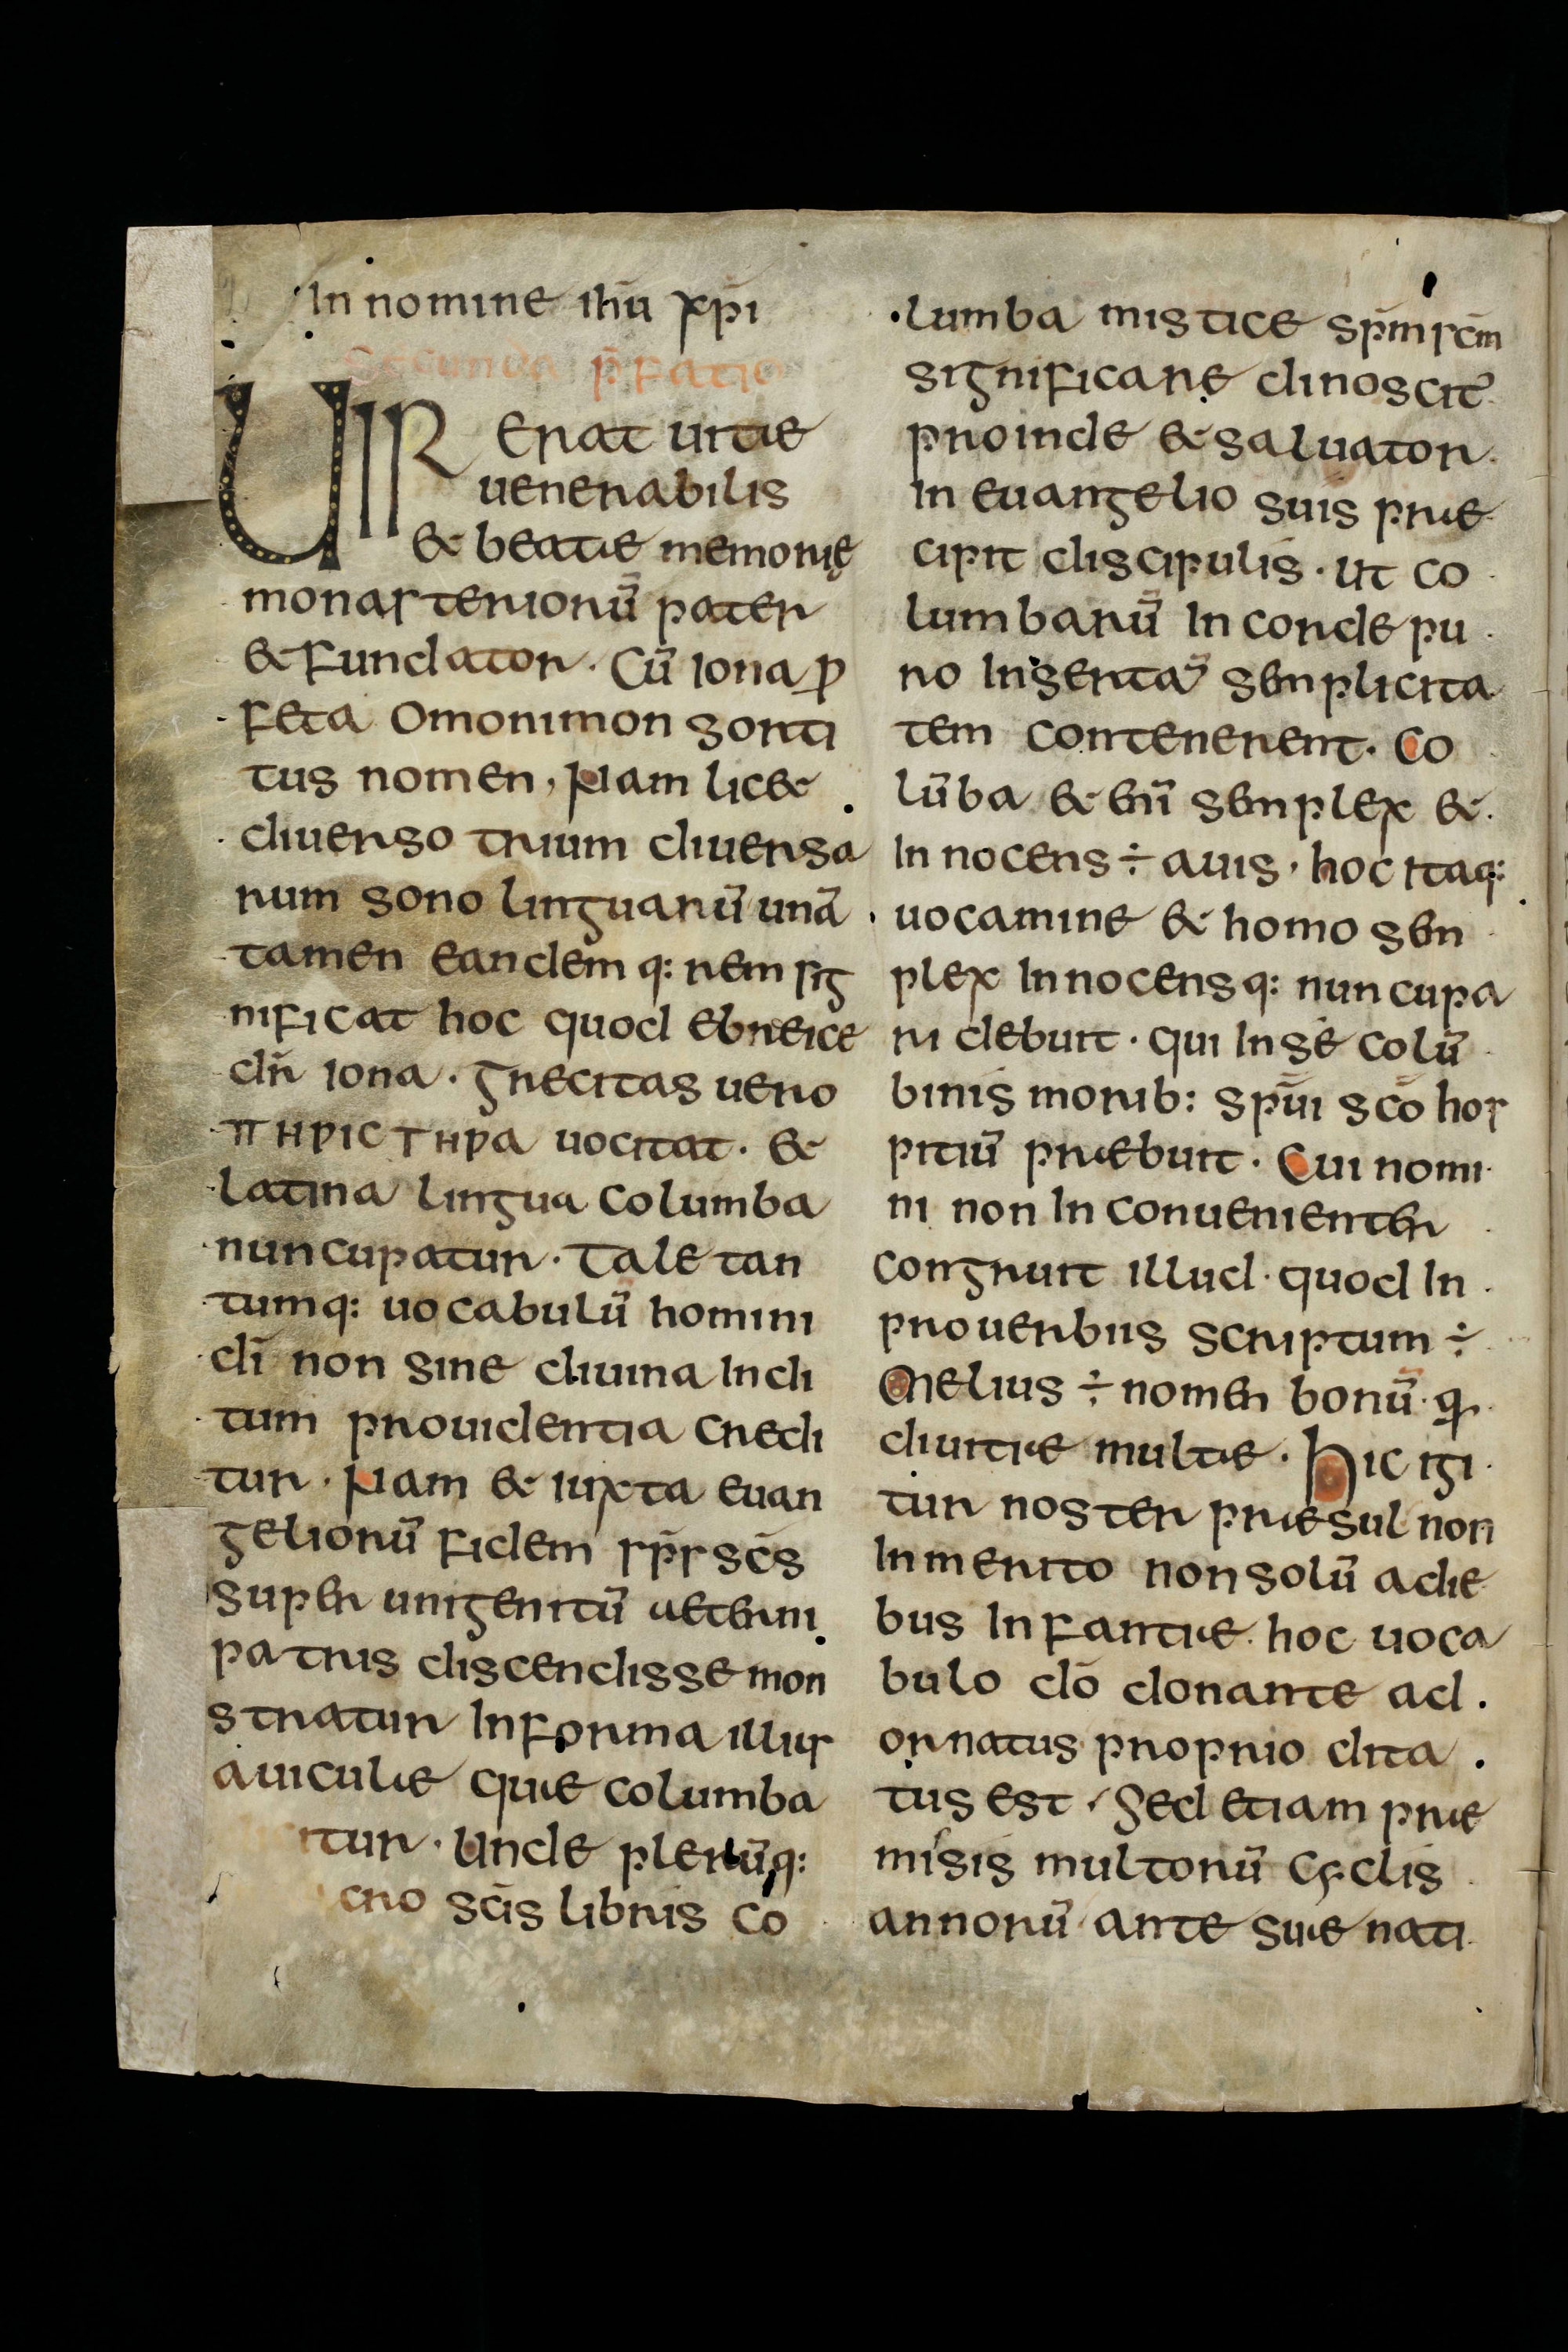 In nomine ihū xp̄i
Secunda p̄fatio
UIR Erat uitae
uenerabilis
& beatae memorię
monasteriorū pater
& fundator. Cū iona ꝓ
feta omonimon sorti
tus nomen, Nam lic&
diuerso trium diuersa
rum sono linguarū unā
tamen eandemq: rem sig
nificat hoc quod ebreice
dr̄ iona. grecitas uero
ΠΗΡΙCΤΗΡΑ uocitat. &
latina lingua columba
nuncupatur. Tale tan
tumq: uocabulū homini
dī non sine diuina indi
tum prouidentia credi
tur. Nam & iuxta euan
geliorū fidem sp̄s sc̄s
super unigenitū aeterni
patris discendisse mon
stratur In forma illius
auiculae quae columba
itur. Unde plerūq:
cro sc̄is libris co
lumba mistice sp̄m sc̄m
significare dinoscit᷒
proinde & saluator
In euangelio suis prae
cipit discipulis. ut co
lumbarū In corde pu
ro Insertā semplicita
tem contenerent. Co
lūba & enī semplex &
Innocens ÷ auis. hoc itaq:
uocamine & homo sem
plex Innocensq: nuncupa
ri debuit. qui In se colū
binis morib: sp̄ui sc̄o hos
pitiū praebuit. Cui nomi
ni non Inconuenienter
congruit illud. quod In
prouerbiis scriptum ÷
Melius ÷ nomen bonū. ꝙ
diuitiae multae. Hic igi
tur noster praesul non
Inmerito non solū a die
bus Infantiae. hoc uoca
bulo dō donante ad
ornatus proprio dita
tus est, Sed etiam prae
misis multorū cyclis
annorū ante suae nati